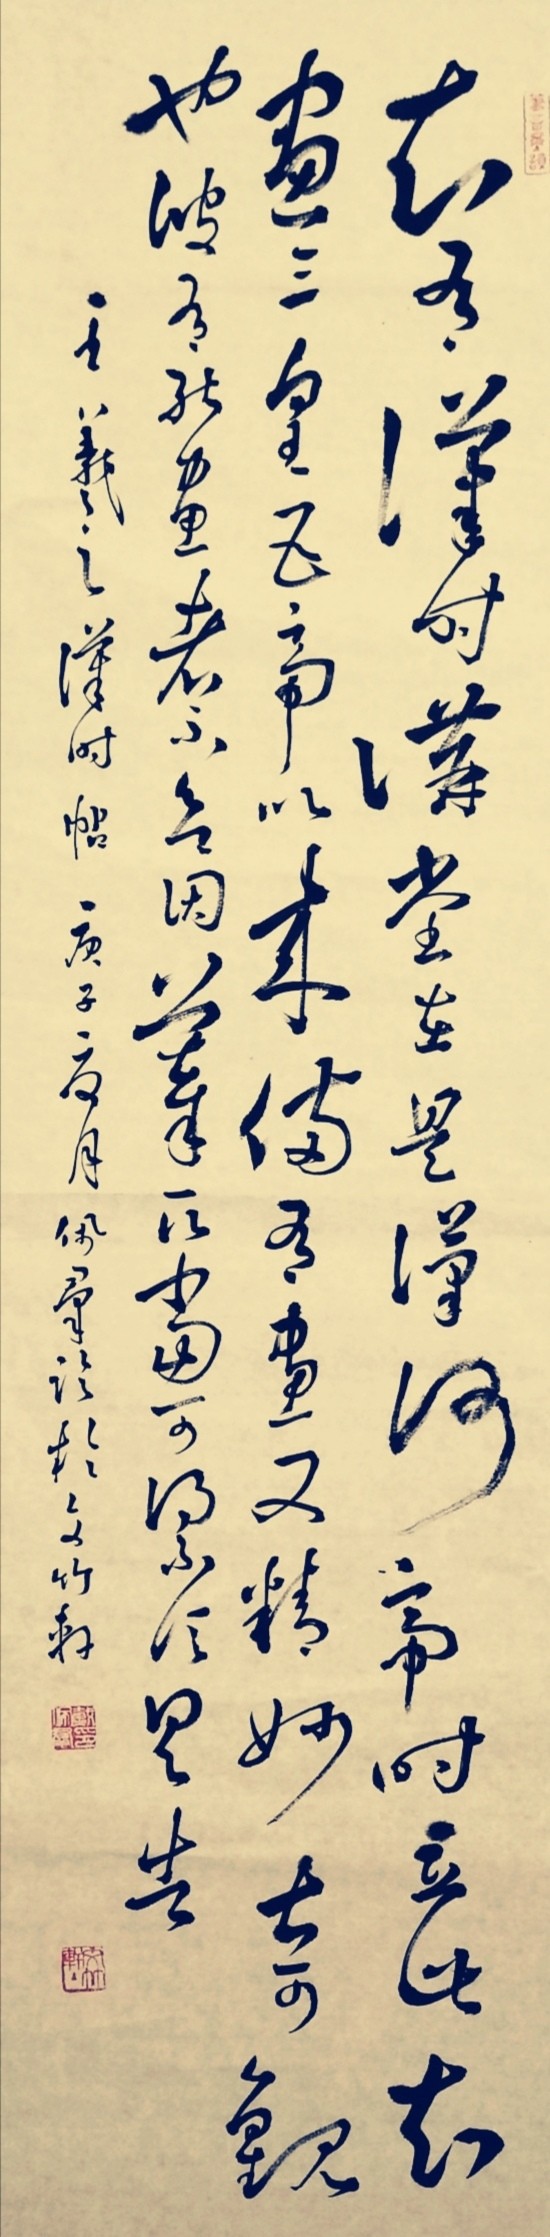 知有漢時講堂在是漢何帝時立此知
畫三皇五帝以來備有畫又精妙甚可觀
也彼有能畫者不欲因摹取當可得不信具告
王羲之漢時帖庚子夏月佩羣臨於文竹軒